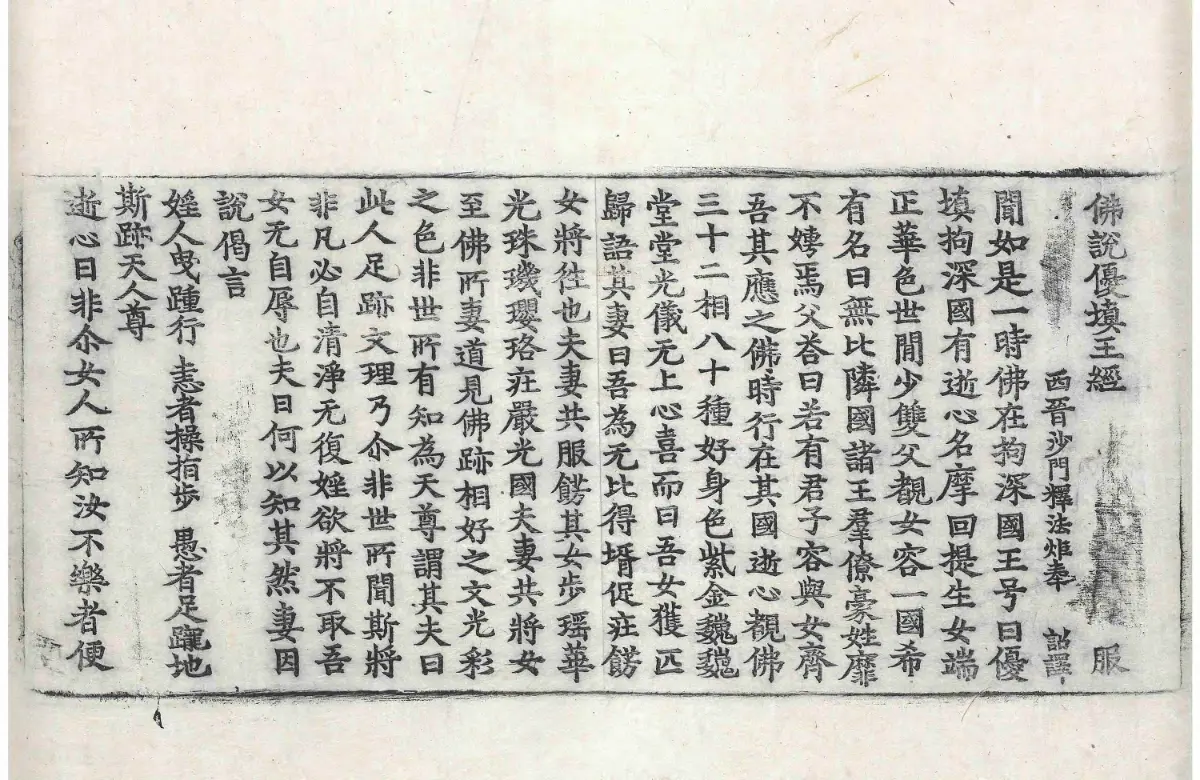 佛說優填王經 服
西晉沙門釋法炬奉 詔譯
聞如是一時佛在拘深國王号曰優
填拘深國有逝心名摩回提生女端
正華色世間少雙父覩女容一國希
有名曰無比隣國諸王羣僚豪姓靡
不娉焉父荅曰若有君子容與女齊
吾其應之佛時行在其國逝心覩佛
三十二相八十種好身色紫金巍巍
堂堂光儀无上心喜而曰吾女獲匹
歸語其妻曰吾為无比得壻促莊餝
女將往也夫妻共服餝其女步瑶華
光珠璣瓔珞莊嚴光國夫妻共將女
至佛所妻道見佛跡相好之文光彩
之色非世所有知為天尊謂其夫曰
此人足跡文理乃尒非世所聞斯將
非凡必自清淨无復婬欲將不取吾
女无自辱也夫曰何以知其然妻因
說偈言
婬人曳踵行 恚者操指步 愚者足躡地
斯跡天人尊
逝心曰非尒女人所知汝不樂者便